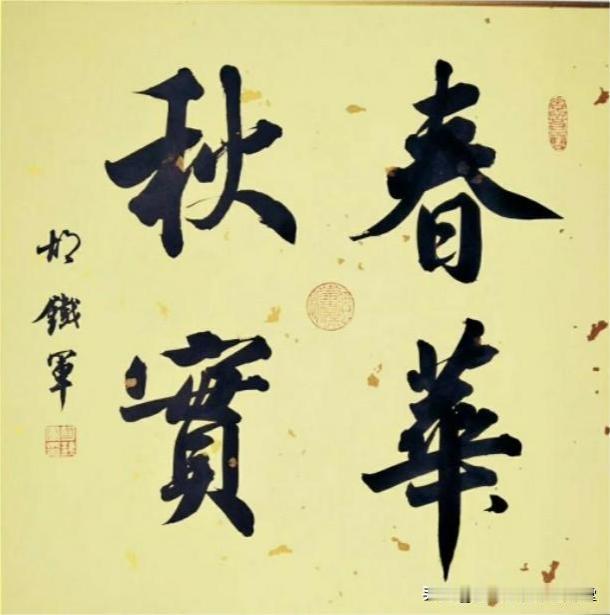 春華
秋實
胡鐵軍